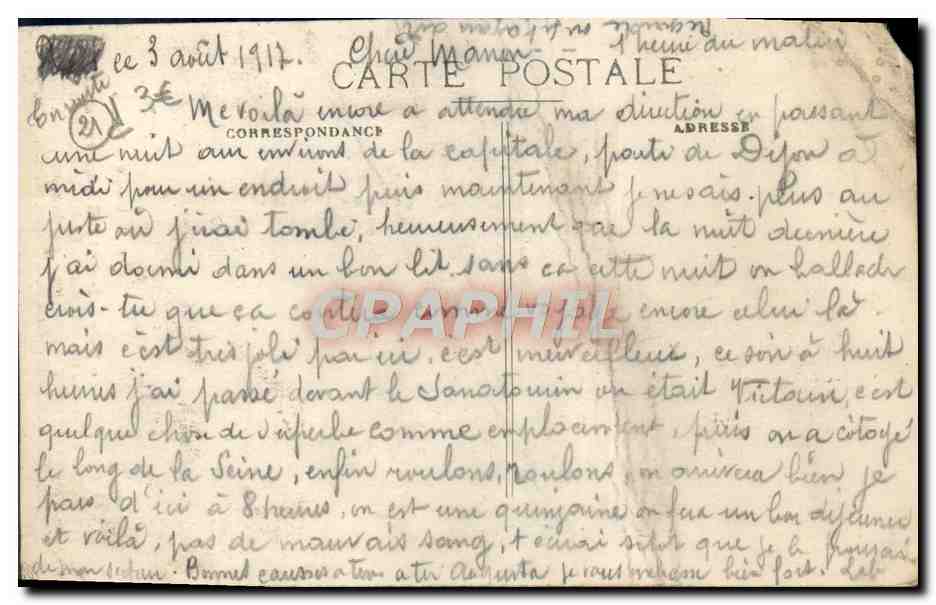 ce 3 août 1917. Cher Manon 1 heure du matin
CARTE POSTALE
En route
21
3€
Me voilà encore a attendre ma direction en passant
CORRESPONDANCE
ADRESSE
une nuit aux environs de la capitale, parti de Dijon à
midi pour un endroit puis maintenant je ne sais plus au
juste où j'irai tombé, heureusement que la nuit dernière
j'ai dormi dans un bon lit sans ca cette nuit on ballade
crois-tu que ça encore celui là
CPAPHIL
mais c'est très joli par ici, c'est merveilleux, ce soir à huit
heures j'ai passé devant le Sanatorium ou était c'est
quelque chose de superbe comme emplacement, puis on a côtoyé
le long de la Seine, enfin roulons, roulons, on arrivera bien je
pars d'ici à 8 heures, on est une quinzaine on fera un bon déjeuner
et voilà, pas de mauvais sang, t'écrirai sitôt que je le pourrai
Bonnes a ton Augusta je vous embrasse bien fort.